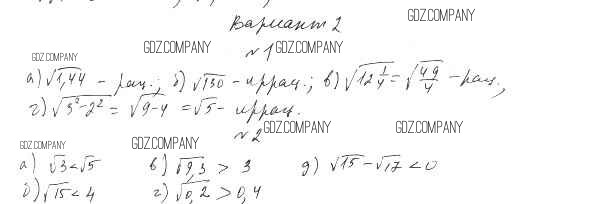 Вариант 2 GDZ.COMPANY
GDZ.COMPANY GDZ.COMPANY №1 GDZ.COMPANY
а) √1,44 – рац.; б) √130 – иррац.; в) √12 1/4 = √49/4 – рац.;
г) √3²-2² = √9-4 = √5 – иррац.
№2 GDZ.COMPANY GDZ.COMPANY
GDZ.COMPANY GDZ.COMPANY
а) √3 < √5 в) √9,3 > 3 д) √15 - √17 < 0
б) √15 < 4 г) √0,2 > 0,4